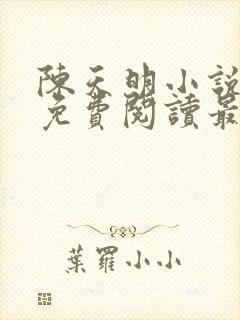 陳天明小說
免費閱讀最
葉羅小小